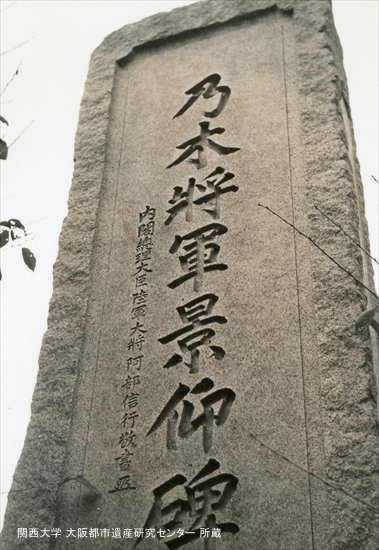 乃木將軍景仰碑
内閣總理大臣陸軍大將阿部信行敬書
関西大学 大阪都市遺産研究センター 所蔵